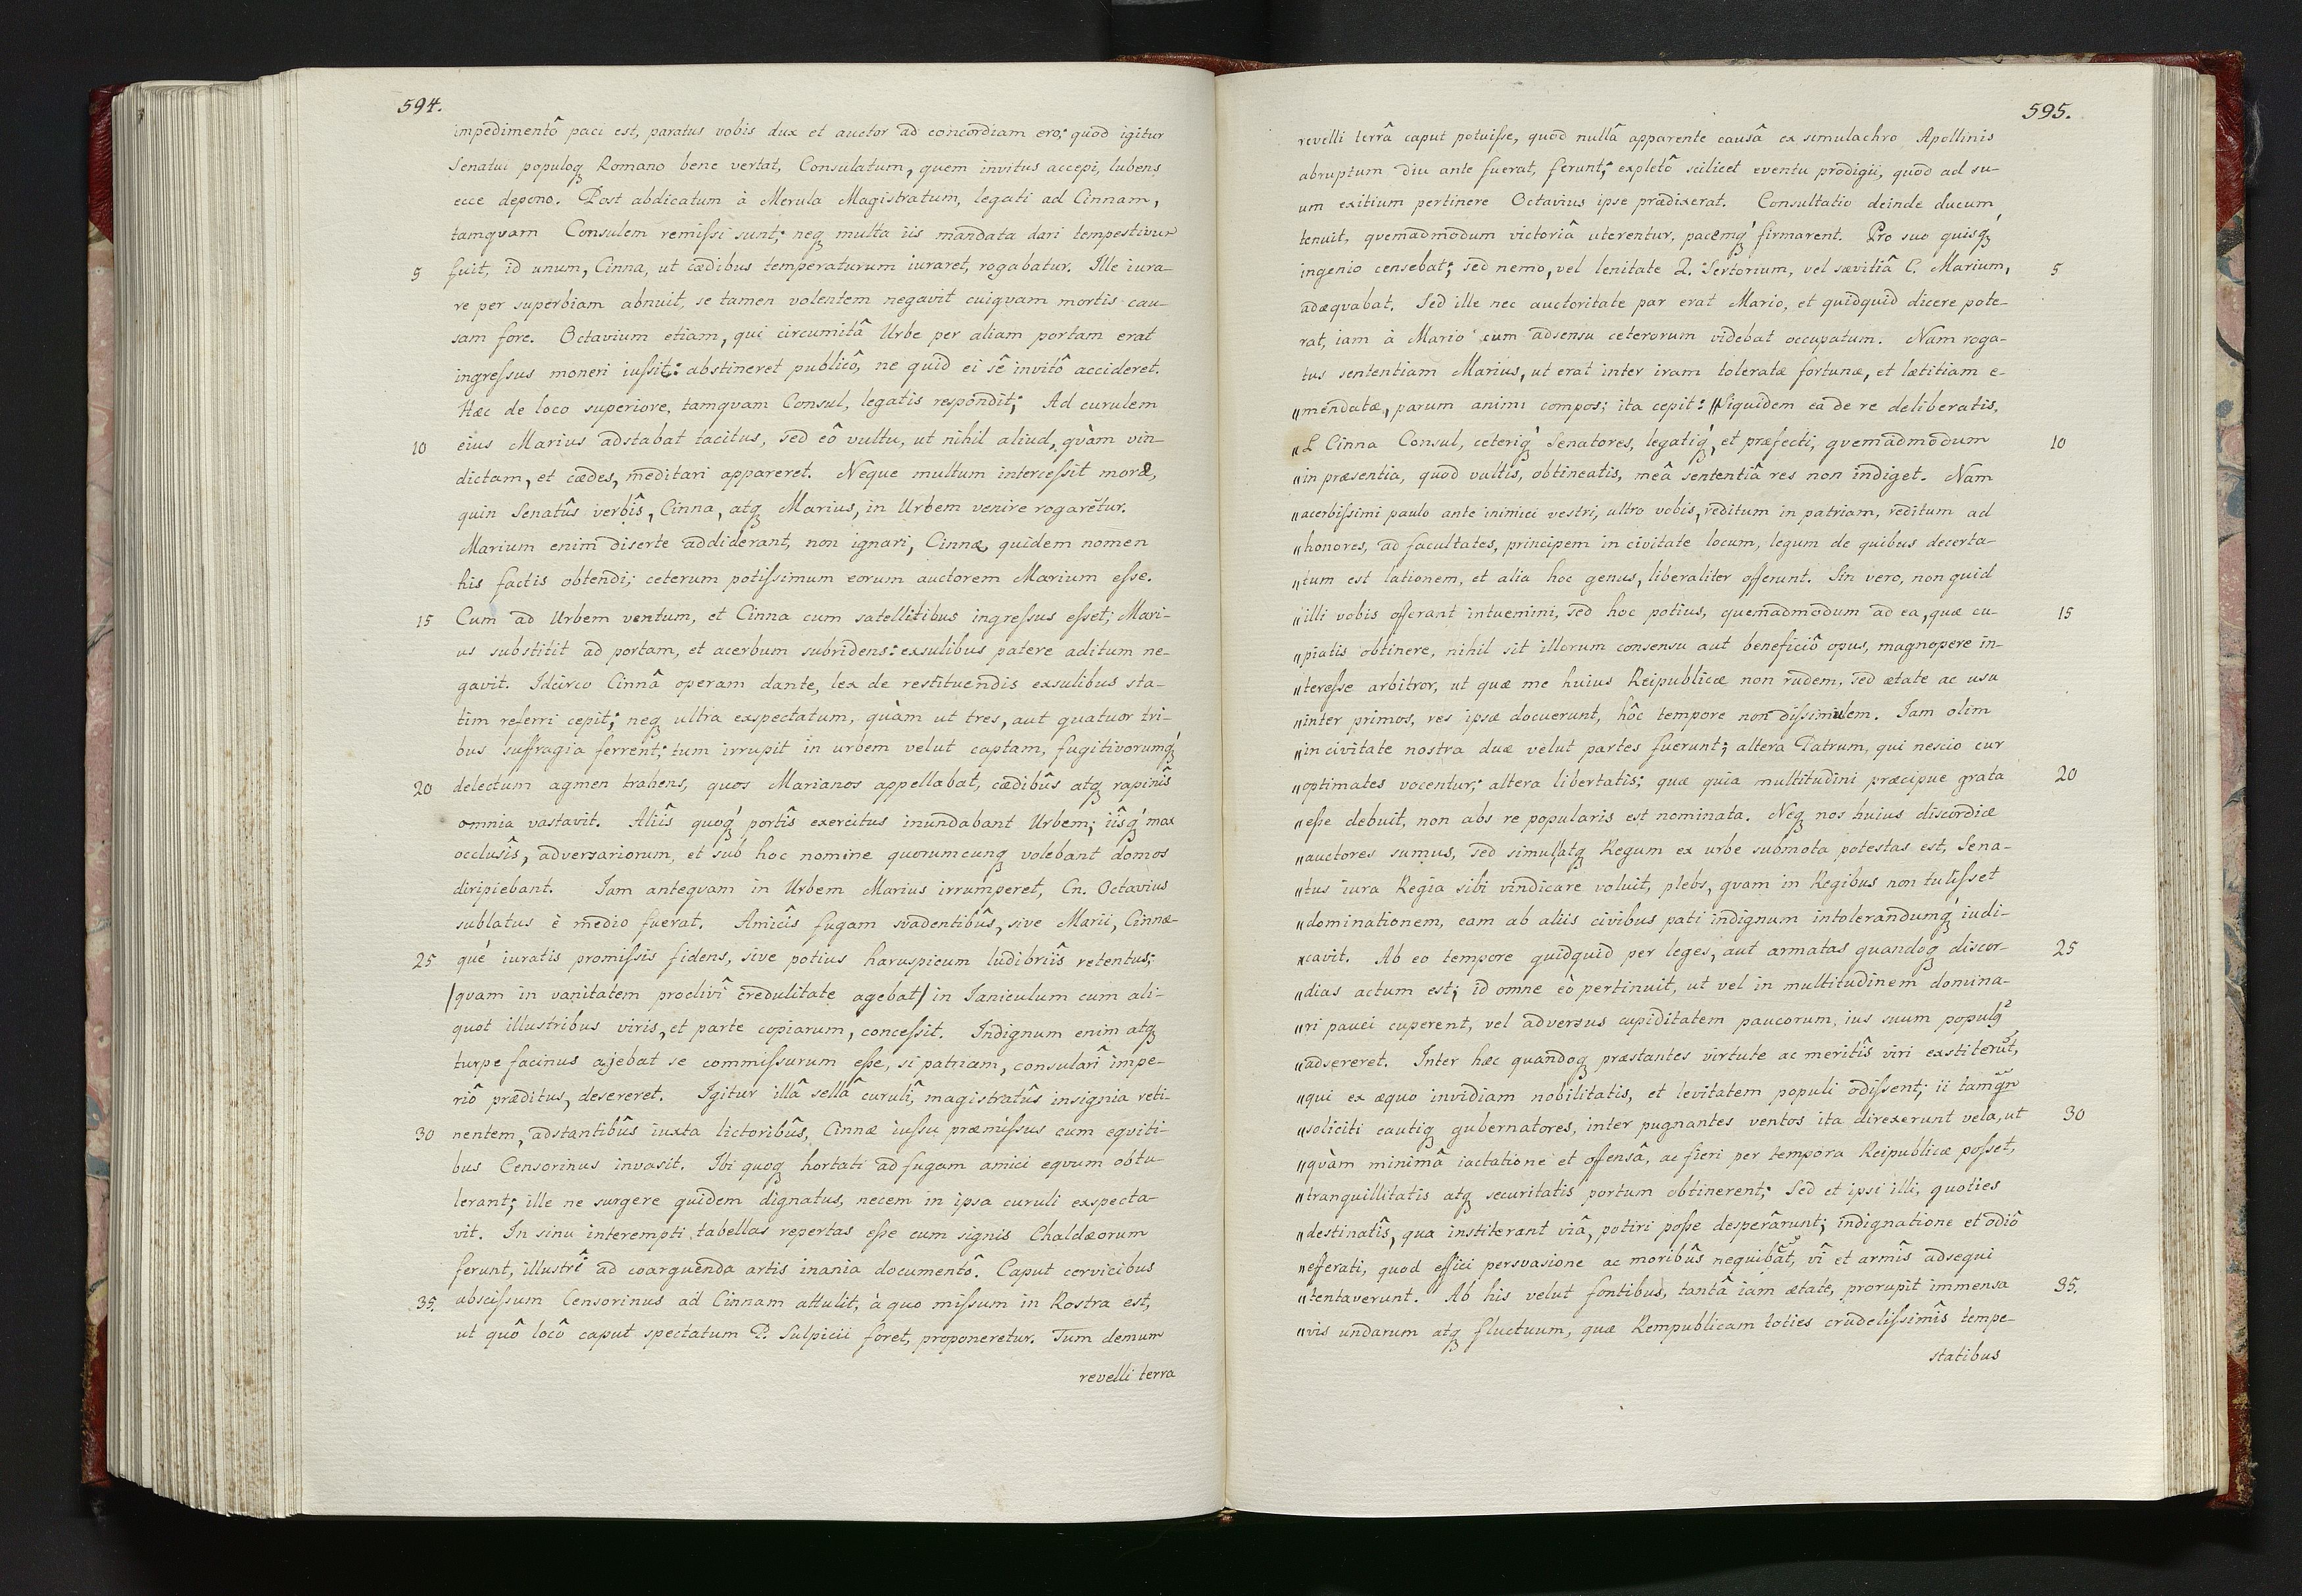 594.
impedimentô paci est, paratus vobis dux et auctor ad concordiam ero; quod igitur
Senatui populoq̨ Romano bene vertat, Consulatum, quem invitus accepi, lubens
ecce depono. Post abdicatum à Merula Magistratum, legati ad Cinnam,
tamqvam Consulem remiſsi sunt; neq̨ multa iis mandata dari tempestivum
5 fuit, id unum, Cinna, ut cædibus temperaturum iuraret, rogabatur. Ille iura-
re per superbiam abnuit, se tamen volentem negavit cuiqvam mortis cau-
sam fore. Octavium etiam, qui circumitâ Urbe per aliam portam erat
ingreſsus moneri iuſsit: abstineret publicô, ne quid ei sê invitô accideret.
Hæc de loco superiore, tamqvam Consul, legatis respondit; Ad curulem
10 eius Marius adstabat tacitus, sed eô vultu, ut nihil aliud, qvàm vin-
dictam, et cædes, meditari appareret. Neque multum interceſsit moræ,
quin Senatûs verbîs, Cinna, atq̨ Marius, in Urbem venire rogarẽtur.
Marium enim diserte addiderant, non ignari, Cinnæ quidem nomen
his factis obtendi; ceterum potiſsimum eorum auctorem Marium eſse.
15 Cum ad Urbem ventum, et Cinna cum satellitibus ingreſsus eſset; Mari-
us substitit ad portam, et acerbum subridens: exsulibus patere aditum ne-
gavit. Idcirco Cinnâ operam dante, lex de restituendis exsulibus sta-
tim referri cepit; neq̨ ultra exspectatum, qvàm ut tres, aut quatuor tri-
bus suffragia ferrent; tum irrupit in urbem velut captam, fugitivorumq̨́
20 delectum agmen trahens, quos Marianos appellabat, cædibûs atq̨ rapinîs
omnia vastavit. Aliîs quoq̨́ portîs exercitus inundabant Urbem; iîsq̨́ mox
occlusîs, adversariorum, et sub hoc nomine quorumcunq̨ volebant domos
diripiebant. Iam anteqvam in Urbem Marius irrumperet, Cn. Octavius
sublatus è medio fuerat. Amicîs fugam svadentibûs, sive Marii, Cinnæ-
25 què iuratis promiſsis fidens, sive potius haruspicum ludibriîs retentus;
/qvam in vanitatem proclivî credulitate agebat/ in Ianiculum cum ali-
quot illustribus viris, et parte copiarum, conceſsit. Indignum enim atq̨
turpe facinus ajebat se commiſsurum eſse, si patriam, consularî impe-
riô præditus, desereret. Igitur illâ sellâ curulî, magistratûs insignia reti-
30 nentem, adstantibûs iuxta lictoribûs, Cinnæ iuſsu præmiſsus cum eqviti-
bus Censorinus invasit. Ibi quoq̨ hortati ad fugam amici eqvum obtu-
lerant; ille ne surgere quidem dignatus, necem in ipsa curuli exspecta-
vit. In sinu interempti tabellas repertas eſse cum signis Chaldæorum
ferunt, illustrî ad coarguenda artis inania documentô. Caput cervicibus
35. absciſsum Censorinus ad Cinnam attulit, à quo miſsum in Rostra est,
ut quô locô caput spectatum P. Sulpicii foret, proponeretur. Tum demum
revelli terra
595.
revelli terrâ caput potuiſse, quod nullâ apparente causâ ex simulachro Apollinis
abruptum diu ante fuerat, ferunt; expletô scilicet eventu prodigii, quod ad su-
um exitium pertinere Octavius ipse prædixerat. Consultatio deinde ducum
tenuit, qvemadmodum victoriâ uterentur, pacemq̨́ firmarent. Pro suo quisq̨́
ingenio censebat; sed nemo, vel lenitate Q. Sertorium, vel sævitiâ C. Marium, 5
adæqvabat. Sed ille nec auctoritate par erat Mario, et quidquid dicere pote-
rat, iam à Mario cum adsensu ceterorum videbat occupatum. Nam roga-
tus sententiam Marius, ut erat inter iram toleratæ fortunæ, et lætitiam e-
„mendatæ, parum animi compos; ita cepit: „Siquidem ea de re deliberatis,
„L Cinna Consul, ceteriq̨́ Senatores, legatiq̨́, et præfecti, qvemadmodum 10
„in præsentia, quod vultis, obtineatis, meâ sententiâ res non indiget. Nam
„acerbiſsimi paulo ante inimici vestri, ultro vobis, reditum in patriam, reditum ad
„honores, ad facultates, principem in civitate locum, legum de quibus decerta-
„tum est lationem, et alia hoc genus, liberaliter offerunt. Sin vero, non quid
„illi vobis offerant intuemini, sed hoc potius, quemadmodum ad ea, quæ cu- 15
„piatis obtinere, nihil sit illorum consensu aut beneficiô opus, magnopere in-
„tereſse arbitror, ut quæ me huius Reipublicæ non rudem, sed ætate ac usu
„inter primos, res ipsæ docuerunt, hôc tempore non diſsimulem. Iam olim
„in civitate nostra duæ velut partes fuerunt; altera Patrum, qui nescio cur
„optimates vocentur; altera libertatis; quæ quia multitudini præcipue grata 20
„eſse debuit, non abs re popularis est nominata. Neq̨ nos huius discordiæ
„auctores sumus, sed simul atq̨ Regum ex urbe submota potestas est, Sena-
„tus iura Regia sibi vindicare voluit, plebs, qvam in Regibus non tuliſset
„dominationem, eam ab aliis civibus pati indignum intolerandumq̨́ iudi-
„cavit. Ab eo tempore quidquid per leges, aut armatas quandoq̨ discor- 25
„dias actum est; id omne eò pertinuit, ut vel in multitudinem domina-
„ri pauci cuperent, vel adversus cupiditatem paucorum, ius suum populq̨
„adsereret. Inter hæc quandoq̨ præstantes virtute ac meritîs viri exstiterũt,
„qui ex æquo invidiam nobilitatis, et levitatem populi odiſsent; ii tamqm̃
„soliciti cautiq̨ gubernatores, inter pugnantes ventos ita direxerunt vela, ut 30
„qvàm minimâ iactatione et offensâ, ac fieri per tempora Reipublicæ poſset,
„tranquillitatis atq̨ securitatis portum obtinerent; Sed et ipsi illi, quoties
„destinatîs, qua institerant viâ, potiri poſse desperârunt; indignatione et odiô
„efferati, quod effici persvasione ac moribûs nequibãt, vî et armîs adsequi
„tentaverunt. Ab his velut fontibus, tantâ iam ætate, prorupit immensa 35.
„vis undarum atq̨ fluctuum, quæ Rempublicam toties crudeliſsimîs tempe-
statibus